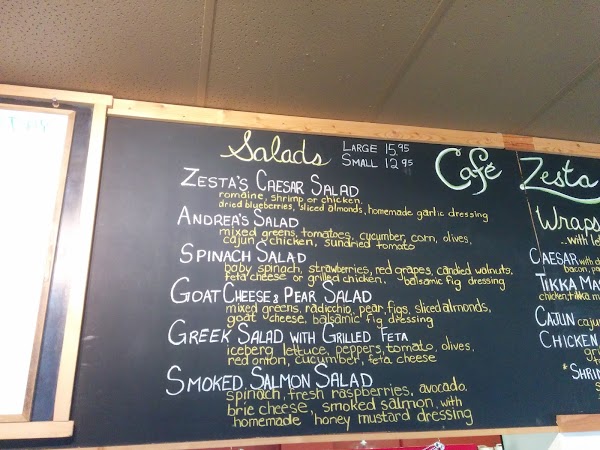 Salads
LARGE 15.95
SMALL 12.95
Café Zesta
ZESTA'S CAESAR SALAD
romaine, shrimp or chicken,
dried blueberries, sliced almonds, homemade garlic dressing
ANDREA'S SALAD
mixed greens, tomatoes, cucumber, corn, olives,
cajun chicken, sundried tomato
SPINACH SALAD
baby spinach, strawberries, red grapes, candied walnuts,
feta cheese or grilled chicken, balsamic fig dressing
GOAT CHEESE & PEAR SALAD
mixed greens, radicchio, pear, figs, sliced almonds,
goat cheese, balsamic fig dressing
GREEK SALAD WITH GRILLED FETA
iceberg lettuce, peppers, tomato, olives,
red onion, cucumber, feta cheese
SMOKED SALMON SALAD
spinach, fresh raspberries, avocado,
brie cheese, smoked salmon, with
homemade honey mustard dressing
Wraps
...with
CAESAR with
bacon,
TIKKA
chicken, tikka
CAJUN
CHICKEN